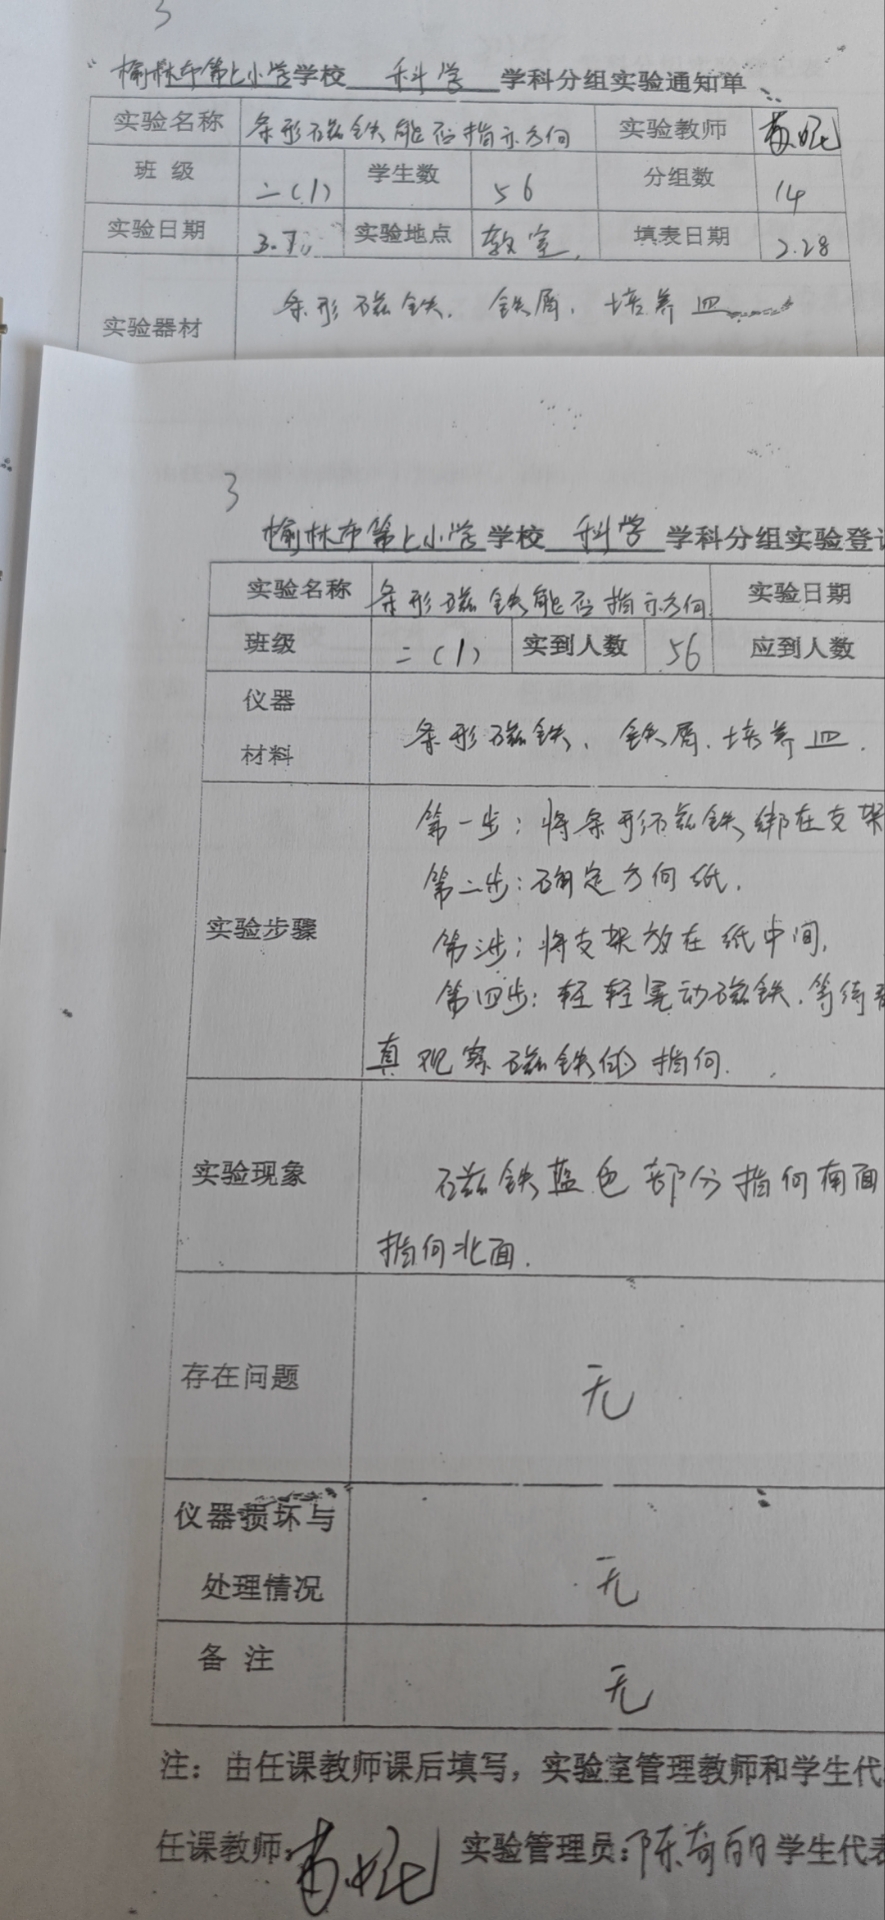 3
榆林市第七小学学校 科学 学科分组实验通知单
实验名称 条形磁铁能否指示方向 实验教师
班 级 二(1) 学生数 56 分组数 14
实验日期 3.7 实验地点 教室 填表日期 2.28
实验器材 条形磁铁、铁屑、培养皿
3
榆林市第七小学学校 科学 学科分组实验登
实验名称 条形磁铁能否指示方向 实验日期
班级 二(1) 实到人数 56 应到人数
仪器
材料 条形磁铁、铁屑、培养皿.
实验步骤
第一步:将条形磁铁绑在支架
第二步:确定方向纸.
第三步:将支架放在纸中间,
第四步:轻轻晃动磁铁.等待
真观察磁铁的指向.
实验现象 磁铁蓝色部分指向南面
指向北面.
存在问题 无
仪器损坏与
处理情况 无
备 注 无
注:由任课教师课后填写,实验室管理教师和学生代
任课教师: 实验管理员:陈奇 学生代表